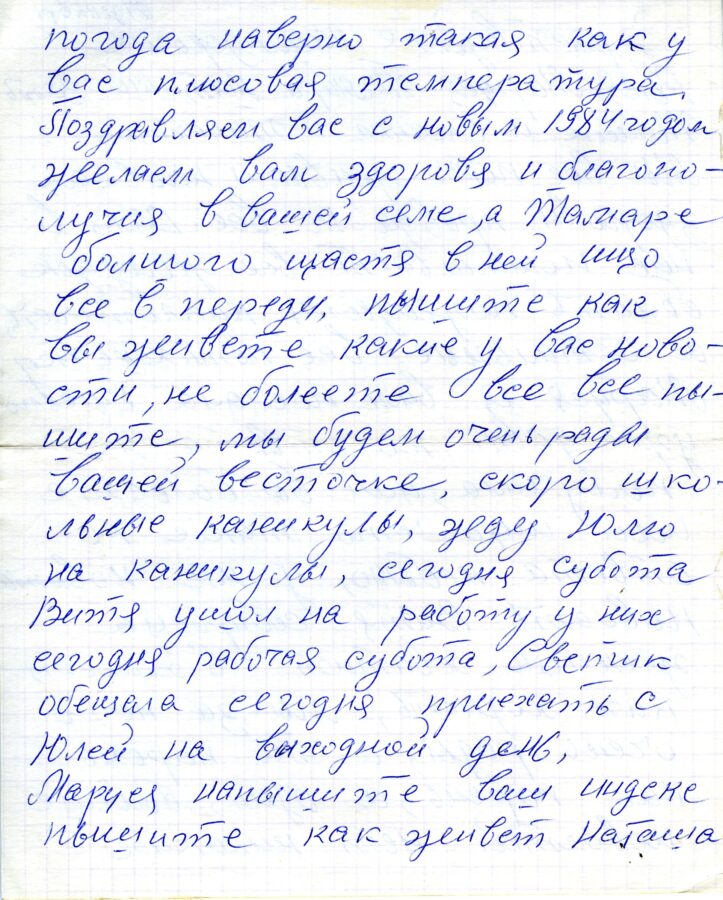 погода наверно такая как у
вас плюсовая температура.
Поздравляем вас с новым 1984 годом
желаем вам здоровя и благопо-
лучия в вашей семе, а Тамаре
болшого щастя в ней ищо
все в переди, пышите как
вы живете какие у вас ново-
сти, не болеете все все пы-
шите, мы будем очень рады
вашей весточке, скоро шко-
льные каникулы, жду Юлю
на каникулы, сегодня субота
Витя ушол на работу у них
сегодня рабочая субота, Светик
обещала сегодня приехать с
Юлей на выходной день,
Маруся напышите ваш индекс
пышите как живет Наташа